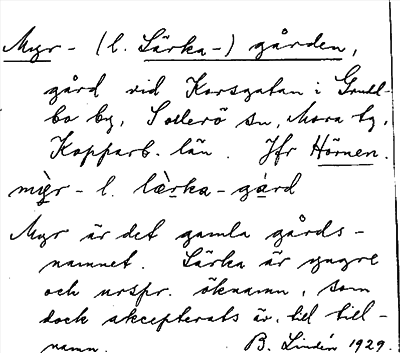 Myr- (l. Lärka-) gården,
gård vid Korsgatan i Grudd-
bo by, Sollerö sn, Mora tg,
Kopparb. län. Jfr Hörnen.
my̖r- l. læ̀rka-gárd
Myr är det gamla gårds-
namnet. Lärka är yngre
och urspr. öknamn, som
dock accepterats äv. till till-
namn. B. Lindén 1929.